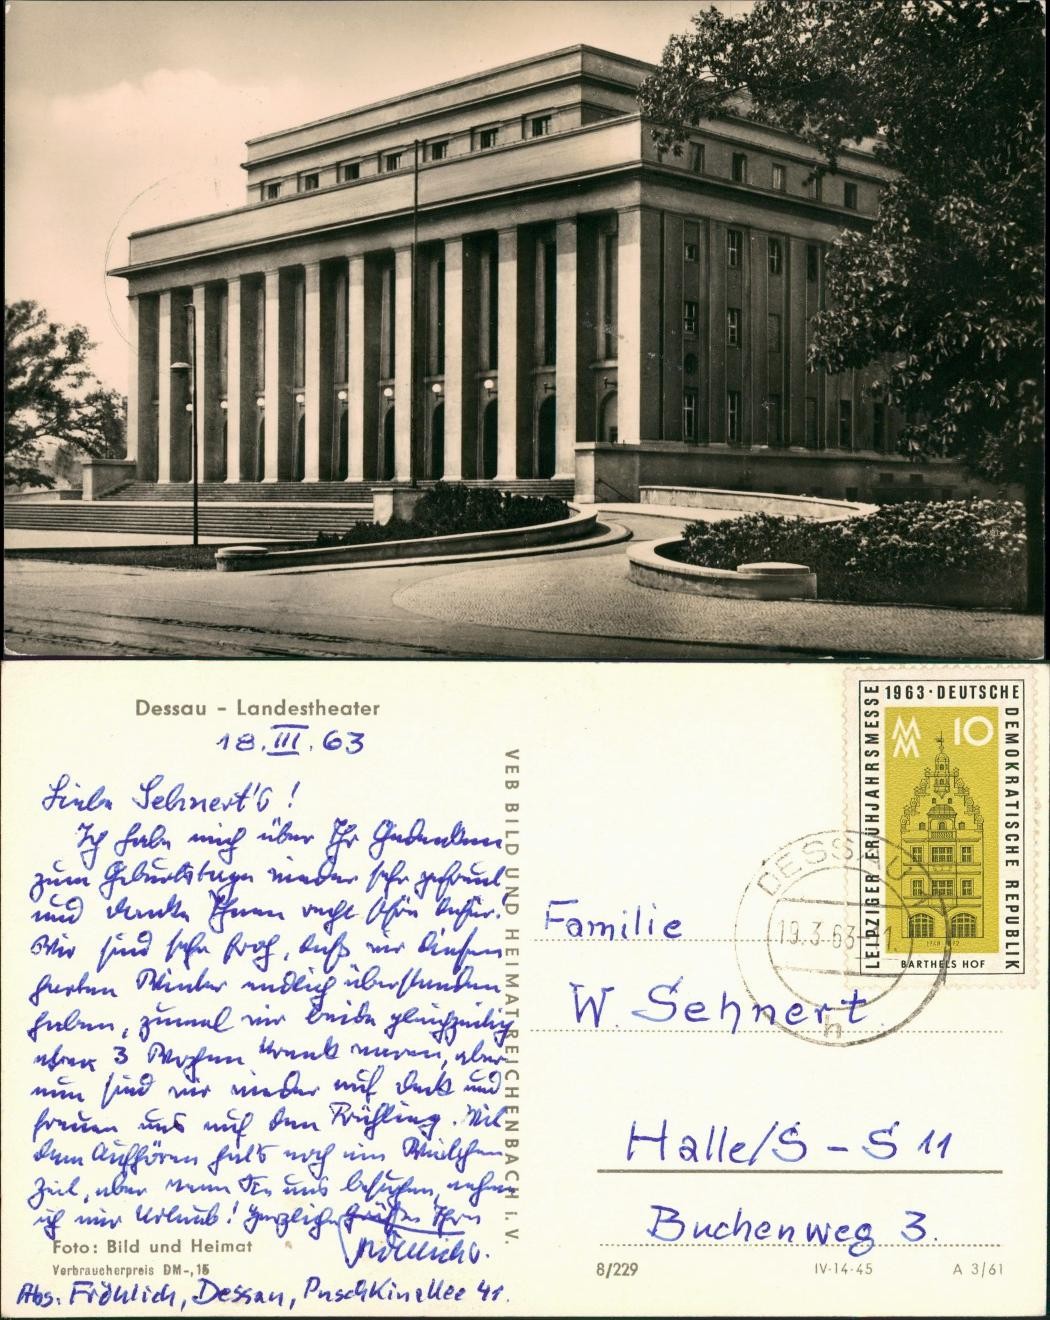 Dessau - Landestheater
18.III.63
Liebe Sehnert's!
Ich habe mich über Ihr Gedenken
zum Geburtstage wieder sehr gefreut
und danke Ihnen recht schön dafür.
Wir sind sehr froh, daß wir diesen
harten Winter endlich überstanden
haben, zumal wir beide gleichzeitig
3 Wochen krank waren, aber
nun sind wir wieder auf Deck und
freuen uns auf den Frühling. Mit
dem Aufhören hat's noch ein Weilchen
Zeit, aber wenn Sie uns besuchen, nehme
ich mir Urlaub! Herzliche Grüße Ihre
Fröhlichs.
Foto: Bild und Heimat
Verbraucherpreis DM-,15
Abs: Fröhlich, Dessau, Puschkinallee 41.
VEB BILD UND HEIMAT REICHENBACH i. V.
LEIPZIGER FRÜHJAHRSMESSE 1963 · DEUTSCHE DEMOKRATISCHE REPUBLIK
MM 10
BARTHELS HOF
DESSAU
19.3.63
h
Familie
W. Sehnert
Halle/S - S 11
Buchenweg 3.
8/229 IV-14-45 A 3/61